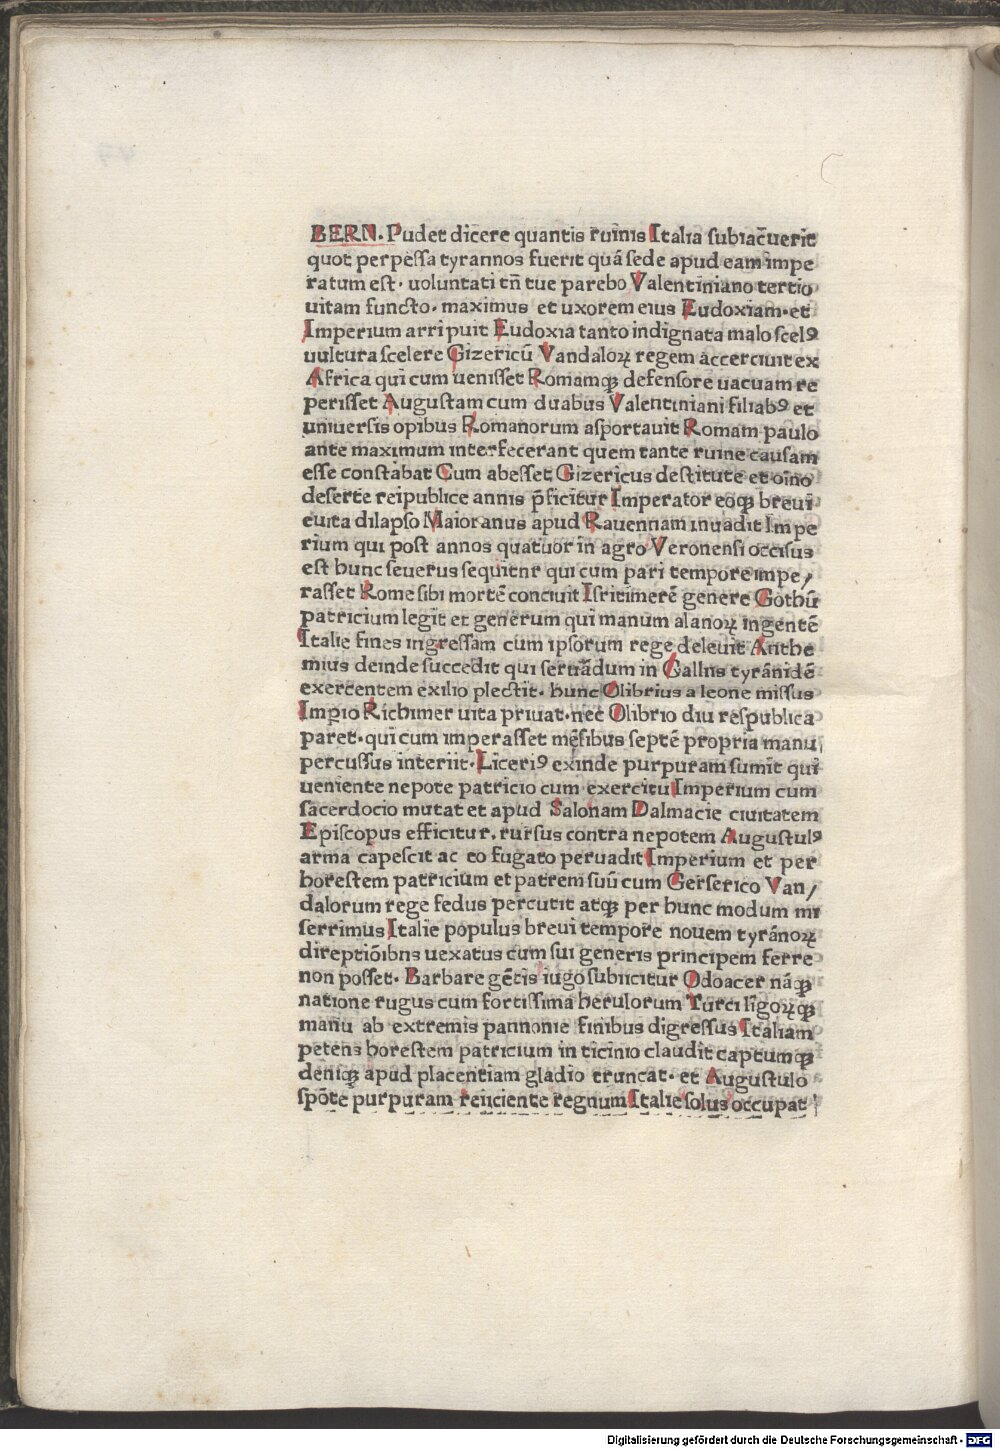 BERN. Pudet dicere quantis ruinis Italia subiac̄uerit
quot perpessa tyrannos fuerit quā sede apud eam impe
ratum est. uoluntati tn̄ tue parebo Valentiniano tertio
uitam functo. maximus et uxorem eius Eudoxiam. et
Imperium arripuit Eudoxia tanto indignata malo scelꝰ
uultura scelere Gizericū Vandaloꝝ regem accerciuit ex
Africa qui cum uenisset Romamqꝫ defensore uacuam re
perisset Augustam cum duabus Valentiniani filiabꝰ et
uniuersis opibus Romanorum asportauit Romam paulo
ante maximum interfecerant quem tante ruine causam
esse constabat Cum abesset Gizericus destitute et oīno
deserte reipublice annis p̄ficitur Imperator eoqꝫ breui
euita dilapso Maioranus apud Rauennam inuadit Impe
rium qui post annos quatuor in agro Veronensi occisus
est hunc seuerus sequitnr qui cum pari tempore impe/
rasset Rome sibi mortē conciuit Isritimerē genere Gothū
patricium legit et generum qui manum alanoꝝ ingentē
Italie fines ingressam cum ipsorum rege deleuit Anthe
mius deinde succedit qui seruādum in Galliis tyrānidē
exercentem exilio plectit. hunc Olibrius a leone missus
Impio Richimer uita priuat. nec Olibrio diu respublica
paret. qui cum imperasset mēsibus septē propria manu
percussus interiit. Liceriꝰ exinde purpuram sumit qui
ueniente nepote patricio cum exercitu Imperium cum
sacerdocio mutat et apud Salonam Dalmacie ciuitatem
Episcopus efficitur. rursus contra nepotem Augustulꝰ
arma capescit ac eo fugato peruadit Imperium et per
horestem patricium et patrem suū cum Gerserico Van/
dalorum rege fedus percutit atqꝫ per hunc modum mi
serrimus Italie populus breui tempore nouem tyrānoꝝ
direptiōibns uexatus cum sui generis principem ferre
non posset. Barbare gētis iugo subiicitur Odoacer nāqꝫ
natione rugus cum fortissima herulorum Turciligoꝝqꝫ
manu ab extremis pannonie finibus digressus Italiam
petens horestem patricium in ticinio claudit captumqꝫ
deniqꝫ apud placentiam gladio truncat. et Augustulo
spōte purpuram reiiciente regnum Italie solus occupat
Digitalisierung gefördert durch die Deutsche Forschungsgemeinschaft - DFG